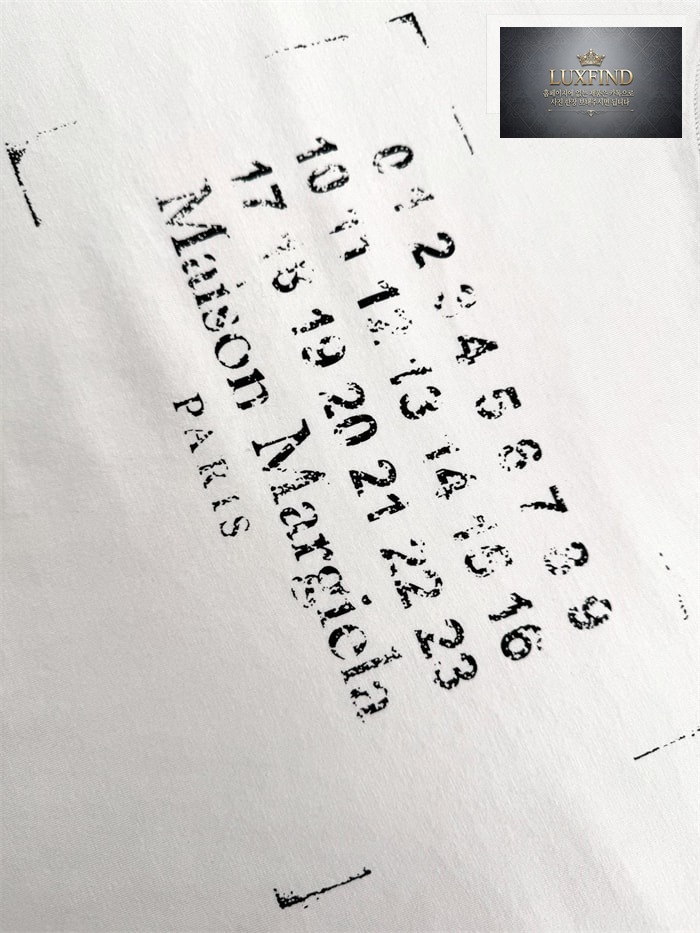 LUXFIND
홈페이지에 없는 제품은 카톡으로
사진 한장 보내주시면 됩니다
0 1 2 3 4 5 6 7 8 9
10 11 12 13 14 15 16
17 18 19 20 21 22 23
Maison Margiela
PARIS